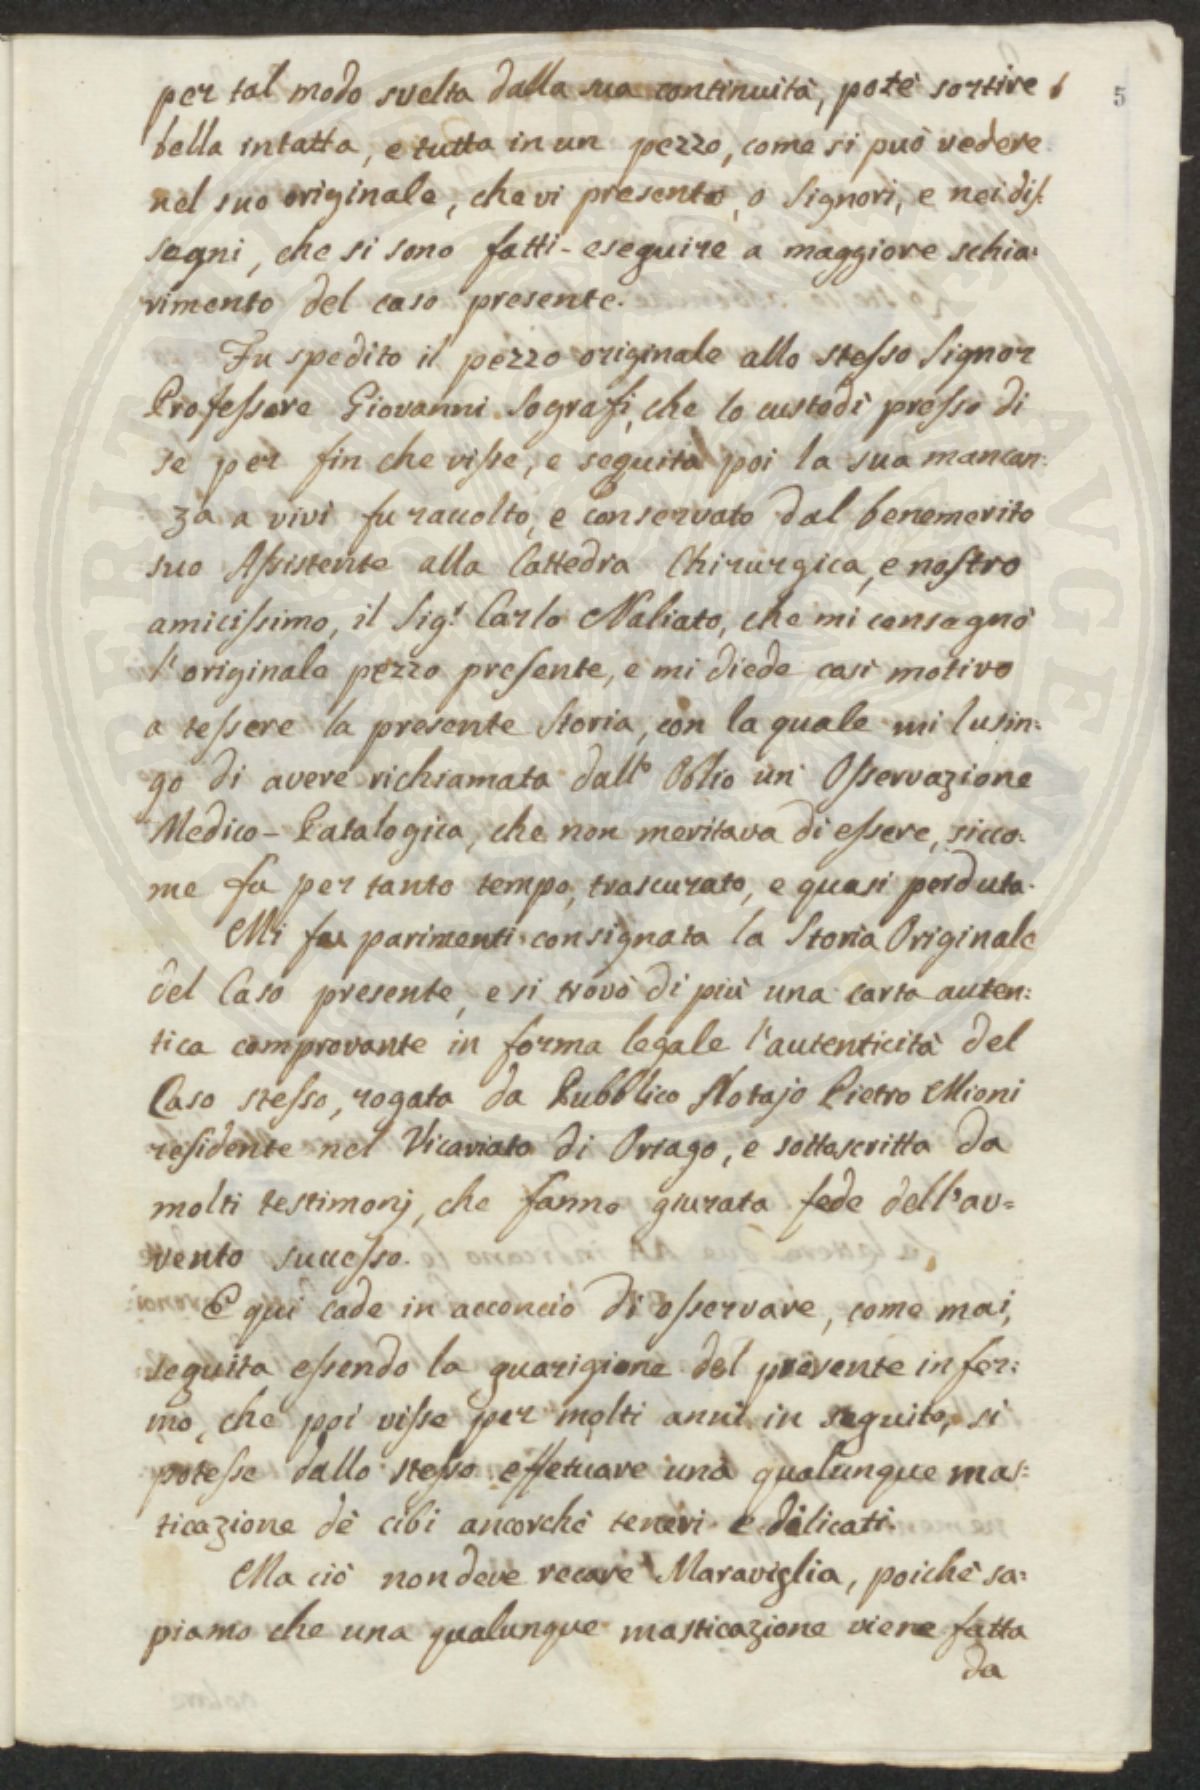 per tal modo svelta dalla sua continuità, potè sortire 5
bella intatta, e tutta in un pezzo, come si può vedere
nel suo originale, che vi presento, o Signori, e nei dis:
segni, che si sono fatti-eseguire a maggiore schia:
rimento del caso presente.
Fu spedito il pezzo originale allo stesso Signor
Professore Giovanni Sografi, che lo custodì presso di
se per fin che visse, e seguita poi la sua mancan:
za a vivi fu raccolto, e conservato dal benemerito
suo Assistente alla Cattedra Chirurgica, e nostro
amicissimo, il Sig.r Carlo Naliato, che mi consegnò
l'originale pezzo presente, e mi diede così motivo
a tessere la presente Storia, con la quale mi lusin:
go di avere richiamata dall' Oblio un' Osservazione
Medico-Patalogica, che non meritava di essere, sicco:
me fu per tanto tempo, trascurato, e quasi perduta.
Mi fu parimenti consignata la Storia Originale
del Caso presente, e si trovò di più una carta auten:
tica comprovante in forma legale l'autenticità del
Caso stesso, rogata da Pubblico Notajo Pietro Mioni
residente nel Vicariato di Orsago, e sottoscritta da
molti testimonj, che fanno giurata fede dell'av=
vento successo.
E qui cade in acconcio di osservare, come mai,
seguita essendo la guarigione del presente infer:
mo, che poi visse per molti anni in seguito, si
potesse dallo stesso effetuare una qualunque mas:
ticazione dè cibi ancorchè teneri e dilicati.
Ma ciò non deve recare Maraviglia, poichè sa:
piamo che una qualunque masticazione viene fatta
da